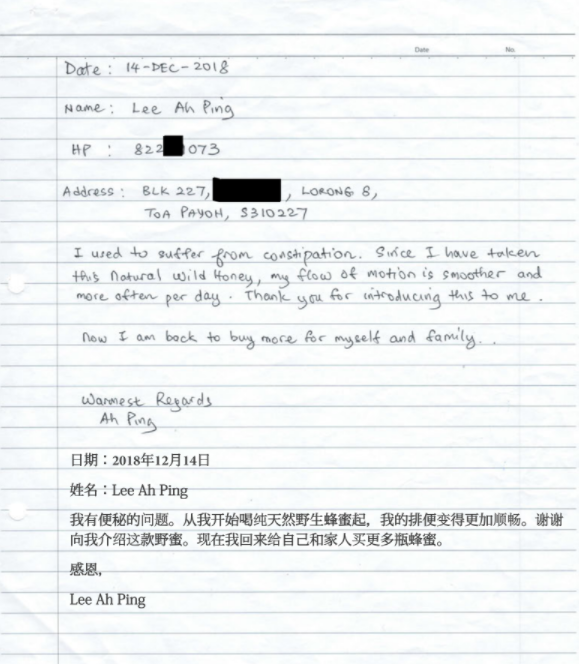 Date No.
Date : 14-DEC-2018
Name : Lee Ah Ping
HP : 822 073
Address : BLK 227, , LORONG 8,
TOA PAYOH, S310227
I used to suffer from constipation. Since I have taken
this Natural Wild Honey, my flow of motion is smoother and
more often per day. Thank you for introducing this to me.
Now I am back to buy more for myself and family..
Warmest Regards
Ah Ping
日期：2018年12月14日
姓名：Lee Ah Ping
我有便秘的问题。从我开始喝纯天然野生蜂蜜起，我的排便变得更加顺畅。谢谢
向我介绍这款野蜜。现在我回来给自己和家人买更多瓶蜂蜜。
感恩，
Lee Ah Ping